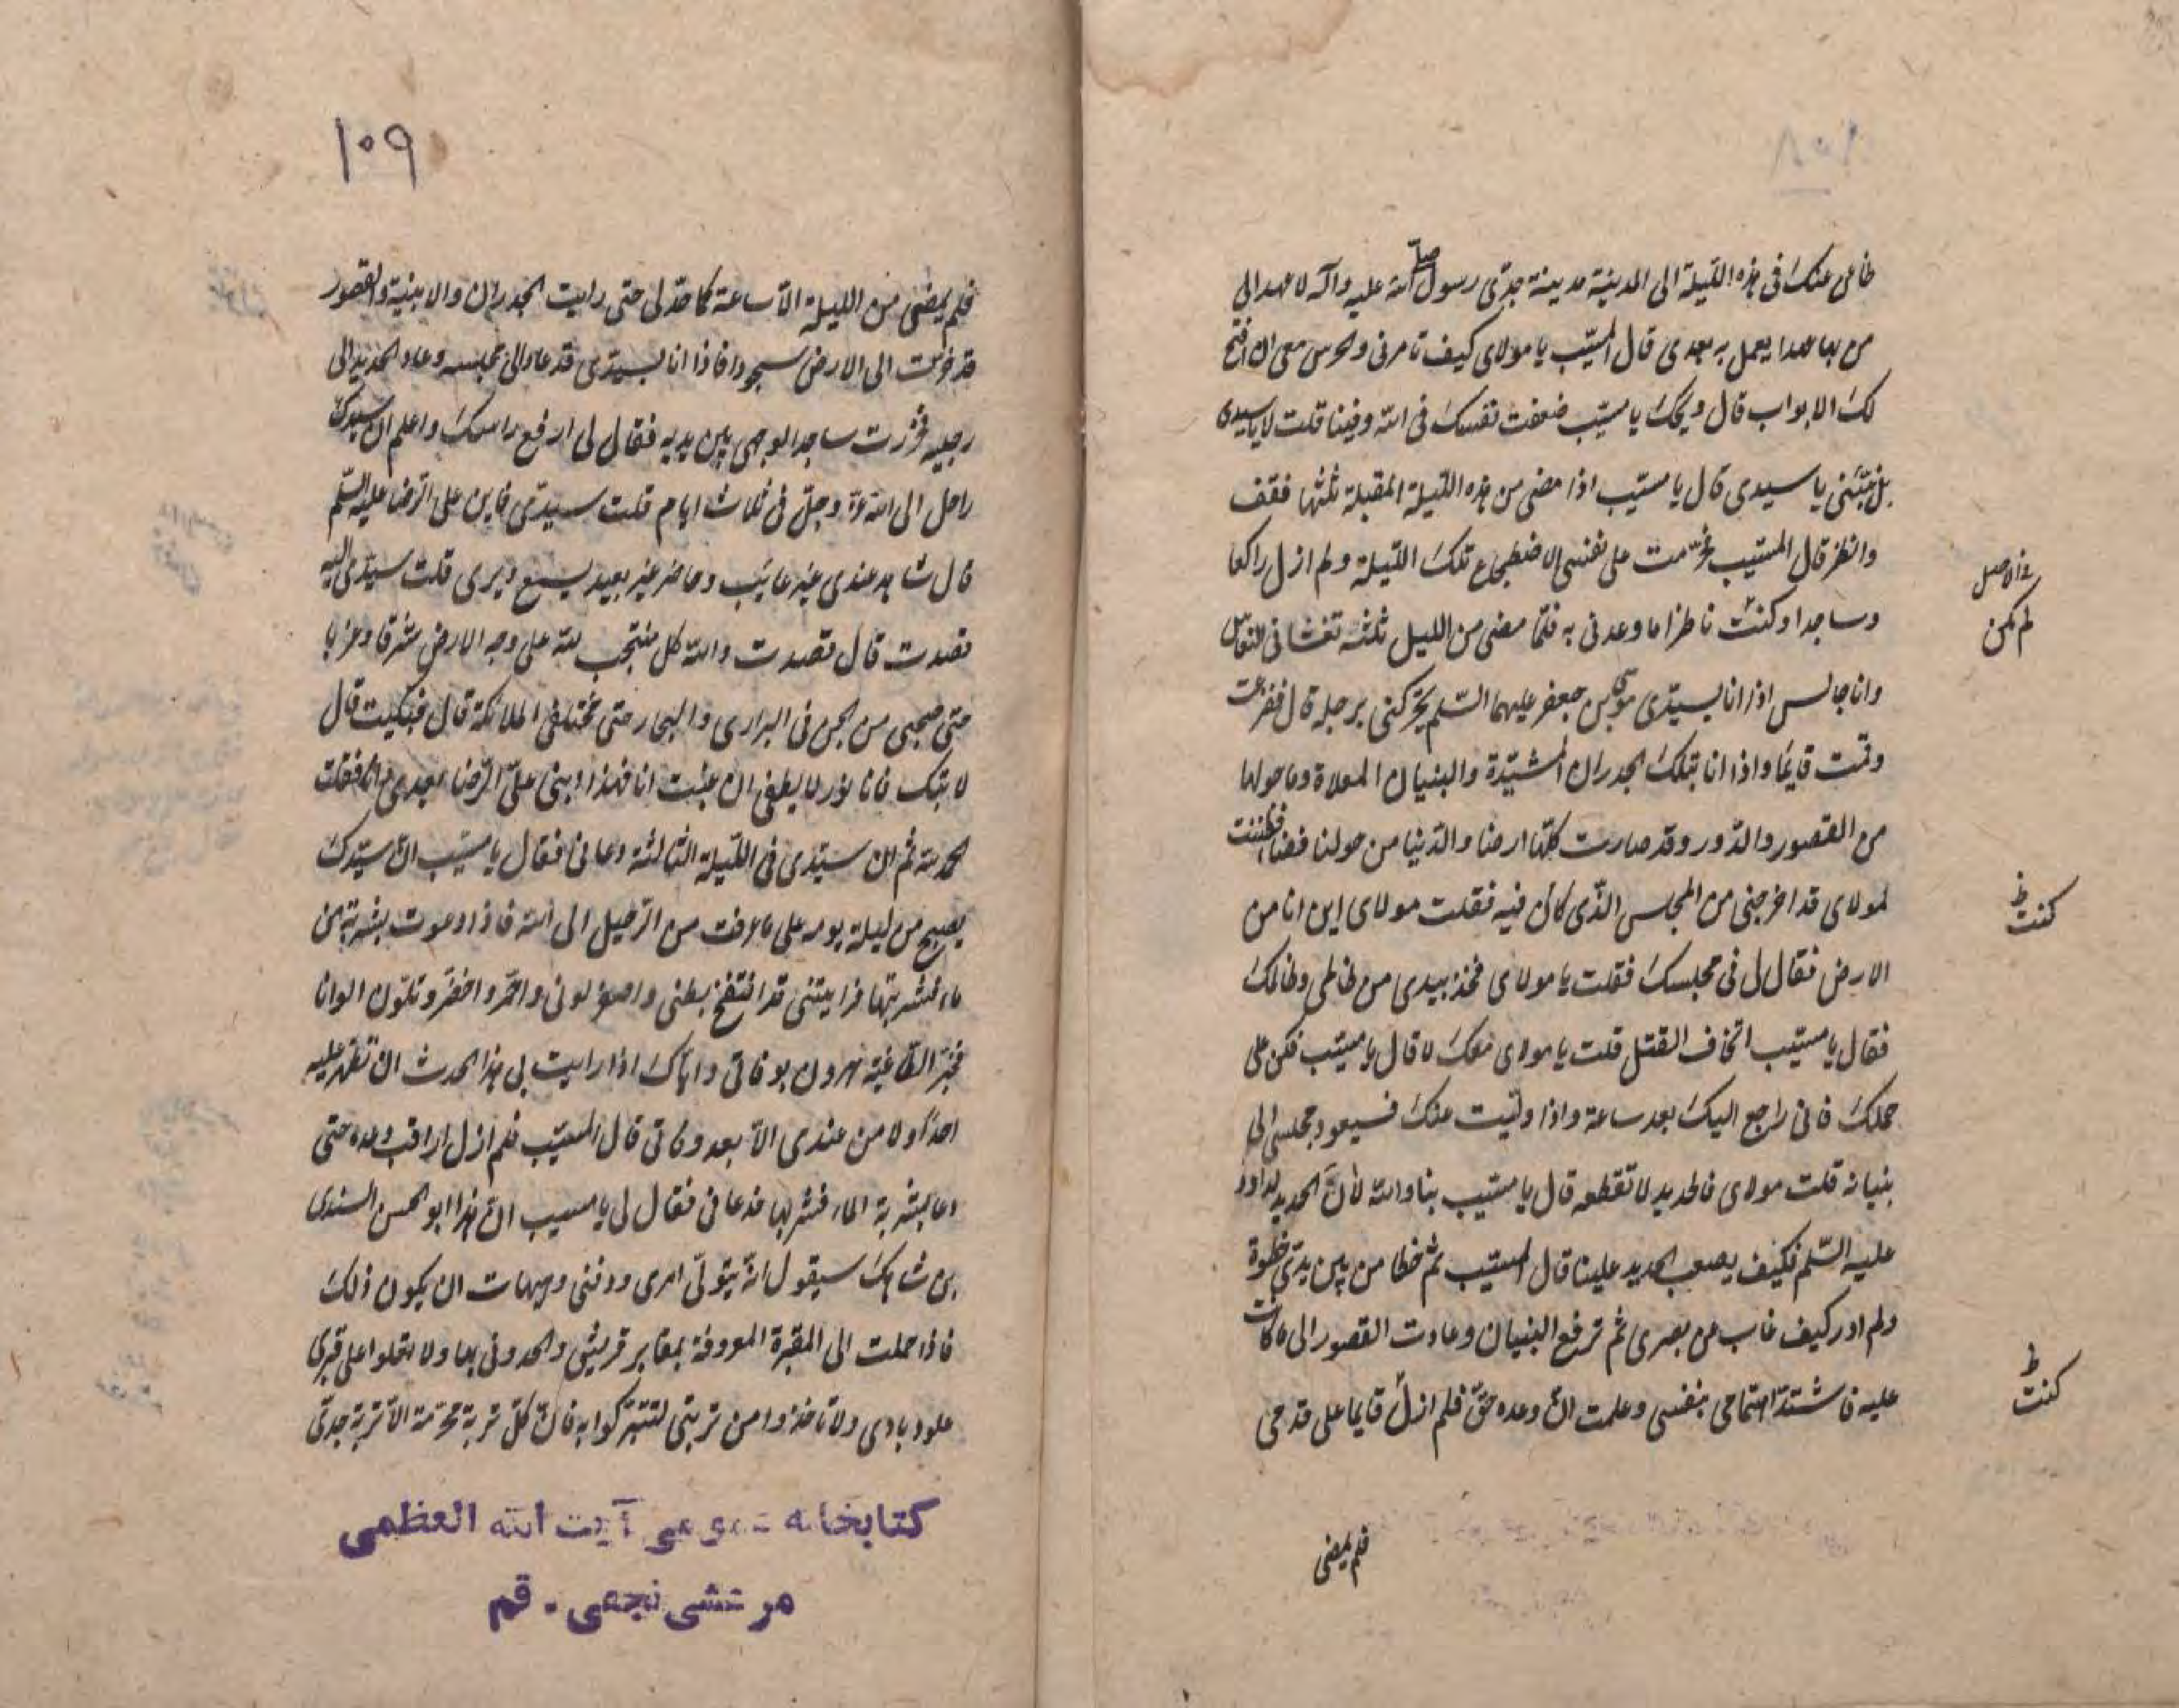 ظاعن عنك فى هذه الليلة الى المدينة مدينة جدى رسول الله صلى عليه وآله لاعهد الى
من بها عهدا يعمل به بعدى قال المسيب يا مولاى كيف تامرنى والحرس معى ان افتح
لك الابواب قال ويحك يا مسيب ضعفت نفسك فى الله وفينا قلت لا يا سيدى
بل ثبتنى يا سيدى قال يا مسيب اذا مضى من هذه الليلة المقبلة ثلثها فقف
وانظر قال المسيب فحرمت على نفسى الاضطجاع تلك الليلة ولم ازل راكعا
وساجدا وكنت ناظرا ما وعدنى به فلما مضى من الليل ثلثه تغشانى النعاس
وانا جالس اذا انا بسيدى موسى بن جعفر عليهما السلم يحركنى برجله قال ففزعت
وقمت قايما واذا انا بتلك الجدران المشيدة والبنيان المعلاة وما حولها
من القصور والدور وقد صارت كلها ارضا والدنيا من حولنا فضا فظننت
لمولاى قد اخرجنى من المجلس الذى كان فيه فقلت مولاى اين انا من
الارض فقال لى فى مجلسك فقلت يا مولاى فخذ بيدى من ظالمى وظالمك
فقال يا مسيب اتخاف القتل قلت يا مولاى معك لا قال يا مسيب فكن على
حملك فانى راجع اليك بعد ساعة واذا وليت عنك فسيعود مجلسى الى
بنيانه قلت مولاى فالحديد لا تقطعه قال يا مسيب بنا والله لأن الحديد لداود
عليه السلم فكيف يصعب الحديد علينا قال المسيب ثم خطا من بين يدى خطوة
ولم ادر كيف غاب من بصرى ثم ترفع البنيان وعادت القصور الى ما كانت
عليه فاشتد اهتمامى بنفسى وعلمت ان وعده حق فلم ازل قايما على قدمى
فلم يمضى
فى الاصل
لم يكن
ظ
كنت
ظ
كنت
١٠٨
١٠٩
فلم يمضى من الليلة الا ساعة كما حد لى حتى رايت الجدران والابنية والقصور
قد خرت الى الارض سجودا فاذا انا بسيدى قد عاد الى مجلسه وعاد الحديد الى
رجليه فخررت ساجدا لوجهى بين يديه فقال لى ارفع راسك واعلم ان سيدك
راحل الى الله عز وجل فى ثلاث ايام قلت سيدى فاين على الرضا عليه السلم
قال شاهد عندى غير غايب وحاضر غير بعيد يسمع ويرى قلت سيدى اليه
قصدت قال قصدت والله كل منتجب لله على وجه الارض شرقا وغربا
حتى محبى من الجن فى البرارى والبحار حتى مختلف الملائكة قال فبكيت قال
لا تبك فانا نور لا يطفى ان غبت انا فهذا ابنى على الرضا بعدى فقلت
الحمد لله ثم ان سيدى فى الليلة الثالثة دعانى فقال يا مسيب ان سيدك
يصبح من ليلة يومه على ما عرفت من الرحيل الى الله فاذا دعوت بشربة من
ماء فشربتها فرايتنى قد انتفخ بطنى واصفر لونى واحمر واخضر وتلون الوانا
فخبر الطاغية هرون بوفاتى واياك اذا رايت بى هذا الحدث ان تظهر عليه
احدا ولا من عندى الا بعد وفاتى قال المسيب فلم ازل اراقب وعده حتى
دعا بشربة الماء فشربها فدعانى فقال لى يا مسيب ان هذا ابو الحسن السندى
بن شاهك سيقول انه يتولى امرى ودفنى وهيهات ان يكون ذلك
فاذا حملت الى المقبرة المعروفة بمقابر قريش والحدونى بها ولا تعلوا على قبرى
علود بادى ولا تاخذوا من تربتى لتتبركوا به فان كل تربة محرمة الا تربة جدى
كتابخانه عمومى آيت الله العظمى
مرعشى نجفى - قم